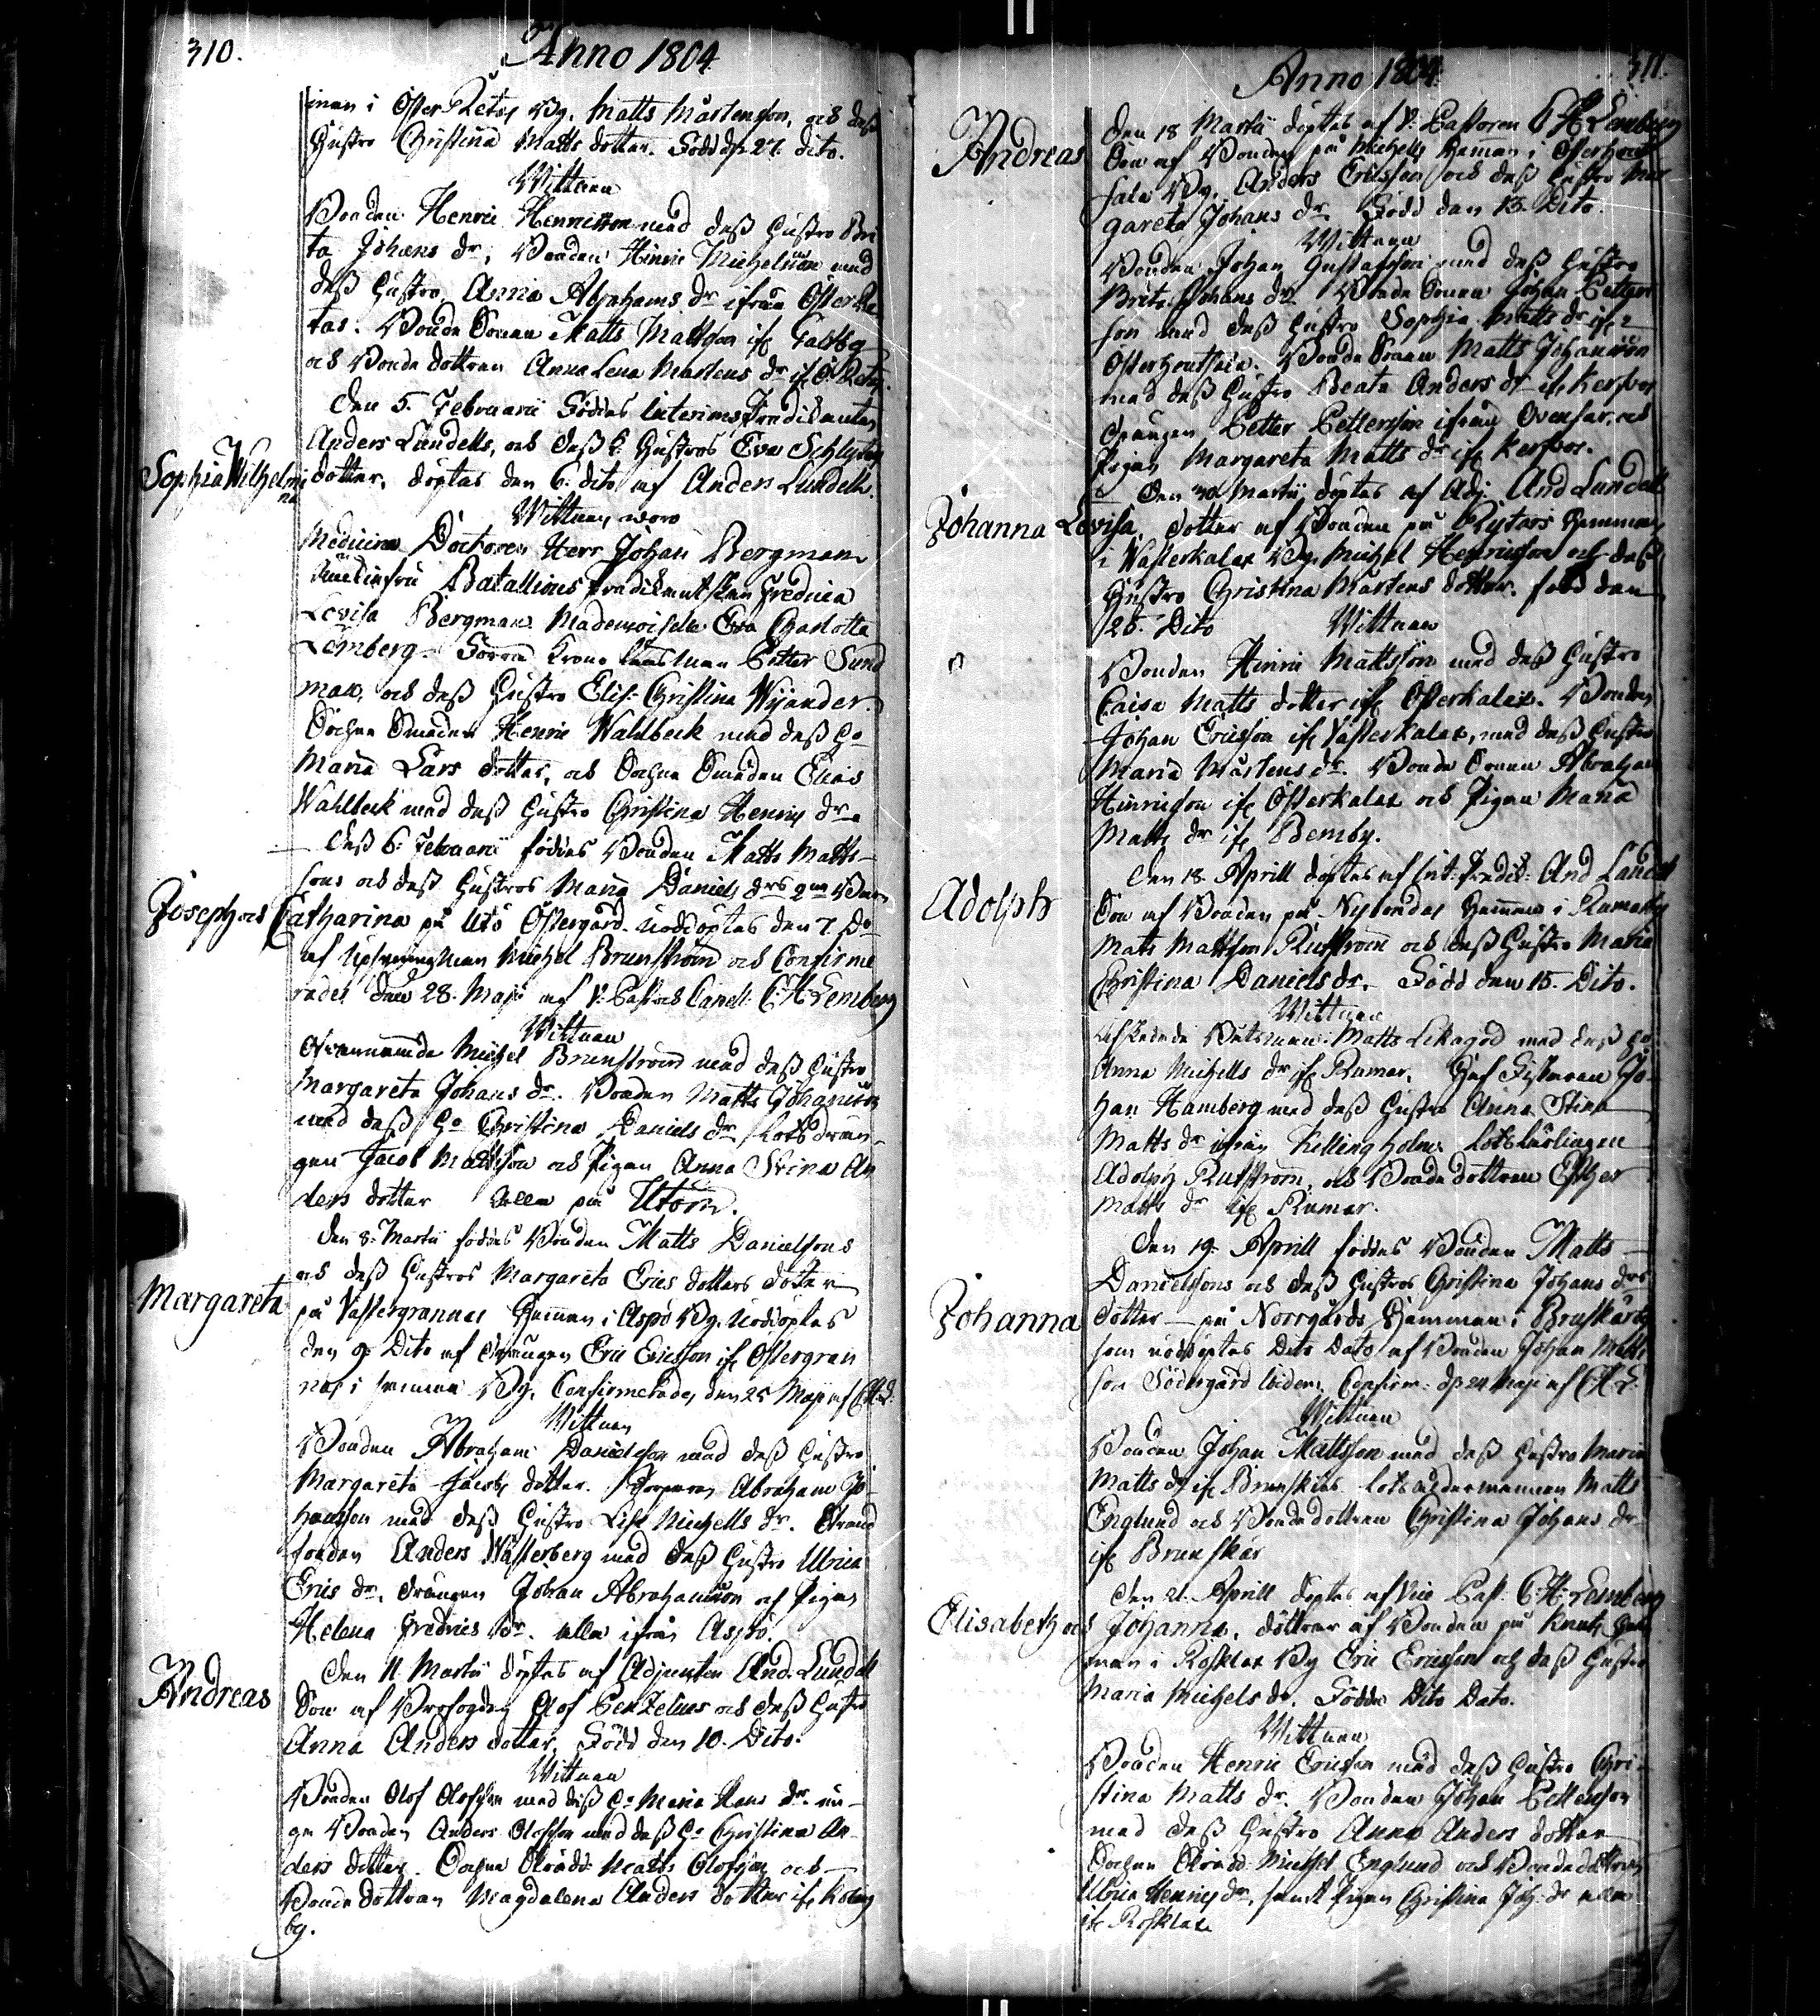 310.
Anno 1804
man i Öster Retas By, Matts Mårtensson, och dess
Hustro Christina Matts dotter. Född d. 27. dito.
Wittnen
Bonden Henric Henricsson med dess Hustro Bri
ta Johans dr, Bonden Hinric Michelsson med
dess Hustro Anna Abrahams dr ifrån Öster Re
tas. Bonde Sonen Matts Mattsson if
och Bonde dottren Anna Lena Mårtens dr if Ö Retas.
Den 5. Februarii Föddes Interims Predikanten
Anders Lundells, och dess k. Hustros Eva Schlyters
Sophia Wilhelmi
na
dotter, döptes den 6. dito af Anders Lundell.
Wittnen woro
Medicinæ Doctoren Herr Johan Bergman
Batallions Predikantskan Fredrica
Lovisa Bergman Mademoiselle Eva Charlotta
Lemberg. Krono Länsman Petter Sund
man, och dess Hustro Elis: Christina Wijander.
Sochne Smeden Henric Wahlbeck med dess Ho
Maria Lars dotter, och Sochne Smeden Elias
Wahlbeck med dess Hustro Christina Henrics dr.
Den 6. Februarii föddes Bonden Matts Matts-
sons och dess Hustros Maria Daniels drs 2ne Barn
Joseph och Catharina på Utö Östergård. Nöddöptes den 7. Do
af Michel Brunström och Confirme
rades den 28. Maji af V. Past. och Capell: C H Lemberg
Wittnen
Ofvannämnde Michel Brunström med dess Hustro
Margareta Johans dr. Bonden Matts Johansson
med dess Ho Christina Daniels dr Lots drän-
gen Jacob Mattsson och Pigan Anna Stina An
ders dotter alla på Utön.
Den 8. Martii föddes Bonden Matts Danielsons
och dess Hustros Margareta Erics dotters dotter
Margareta
på Västergrannas Hemman i Aspö By. Nöddöptes
den 9. Dito af drängen Eric Ericsson if Östergran
nas i samma By, Confirmerades den 25 Maji af C H L.
Wittnen
Bonden Abraham Danielsson med dess Hustro
Margareta Jacobs dotter. Abraham Jo-
hansson med dess Hustro Lisa Michells dr. Strand
fogden Anders Wästerberg med dess Hustro Ulrica
Erics dr, drängen Johan Abrahamsson och Pigan
Helena Fredrics dr. alla ifrån Aspö.
Den 11. Martii döptes af Adjuncten And. Lundell
Andreas
Son af Brofogden Olof Benzelius och dess Hustro
Anna Anders dotter, Född den 10. Dito.
Wittnen
Bonden Olof Olofsson med dess Ho Maria Hans dr. un-
ge Bonden Anders Olofsson med dess Ho Christina An-
ders dotter. Sochne Matts Olofsson och
Bonde dottren Magdalena Anders dotter if
by.
Anno 1804
311.
Andreas
Den 18 Martii döptes af V. Pastoren C H Lemberg
Son af Bonden på Michells Heman i Österhout
sala By, Anders Ericsson och dess Hustro Mar
gareta Johans dr. Född den 13. Dito.
Wittnen
Bonden Johan Gustafsson med dess Hustro
Brita Johans dr. Bonde Sonen Johan Petters
son med dess Hustro Sophia Matts dr if
Österhoutsala. Bonde Sonen Matts Johansson
med dess Hustro Beata Anders dr if Kerfvor
drängen Petter Pettersson ifrån Ovensor, och
Pigan Margareta Matts dr if Kerfvor.
Den 30 Martii döptes af Adj. And Lundell
Johanna Lovisa, dotter af Bonden på Rytars Hemman
i Västerkalax By, Michel Henricsson och dess
Hustro Christina Mårtens dotter. född den
25. Dito
Wittnen
Bonden Hinric Mattsson med dess Hustro
Caisa Matts dotter if Österkalax. Bonden
Johan Ericsson if Västerkalax, med dess Hustro
Maria Mårtens dr. Bonde Sonen Abraham
Hinricsson if Österkalax och Pigan Maria
Matts dr if Bemby.
Den 18. Aprill döptes af Int: Predik: And Lundell
Adolph
Son af Bonden på Nylandas Hemman i Ramar
Mats Mattson Rusström och dess Hustro Maria
Christina Daniels dr. Född den 15. Dito.
Wittnen
Båtsman Matts Lekagod med dess Ho
Anna Michells dr if Rumar. Jo-
han Hamberg med dess Hustro Anna Stina
Matts dr ifrån Kellingholm. Lots Lärlingen
Adolph Rusström, och Bonde dottren Esther
Matts dr if Rumar.
Den 19. Aprill föddes Bonden Matts
Danielssons och dess Hustros Christina Johans drs
Johanna
dotter på Norrgårds Hemman i Brunskär
som nöddöptes Dito Dato af Bonden Johan Matts
son Södergård ibidem. Confirm: d. 24 Maji af C H L.
Wittnen
Bonden Johan Mattsson med dess Hustro Maria
Matts dr if Brunskär. Lots åldermannen Matts
Englund och Bonde dottren Christina Johans dr
if Brunskär
Den 21. Aprill döptes af Vice Past. C H Lemberg
Elisabeth och Johanna, döttrar af Bonden på Knuts Hem
man i Rosklax By Eric Ericsson och dess Hustro
Maria Michels dr. Födde Dito Dato.
Wittnen
Bonden Henric Ericsson med dess Hustro Chri-
stina Matts dr. Bonden Johan Pettersson
med dess Hustro Anna Anders dotter
Sochne Michel Englund och Bonde dottren
Ulrica Henrics dr, samt Pigan Christina Joh: dr alla
if Rosklax